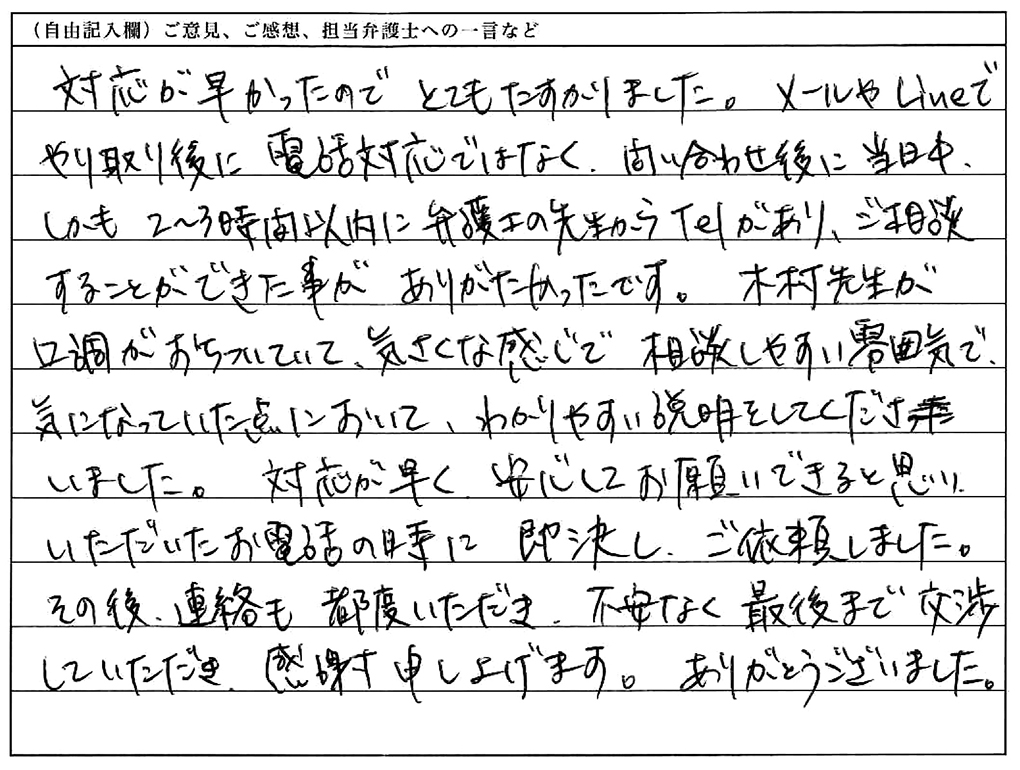 （自由記入欄）ご意見、ご感想、担当弁護士への一言など
対応が早かったので とてもたすかりました。 メールやLineで
やり取り後に 電話対応ではなく、問い合わせ後に 当日中、
しかも 2〜3時間以内に弁護士の先生からTelがあり、ご相談
することができた事が ありがたかったです。 木村先生が
口調がおちついていて、気さくな感じで 相談しやすい雰囲気で、
気になっていた点において、わかりやすい説明をしてくださ
いました。 対応が早く、安心してお願いできると思い、
いただいたお電話の時に 即決し、ご依頼しました。
その後、連絡も 都度いただき、不安なく 最後まで 交渉
していただき、感謝申し上げます。 ありがとうございました。